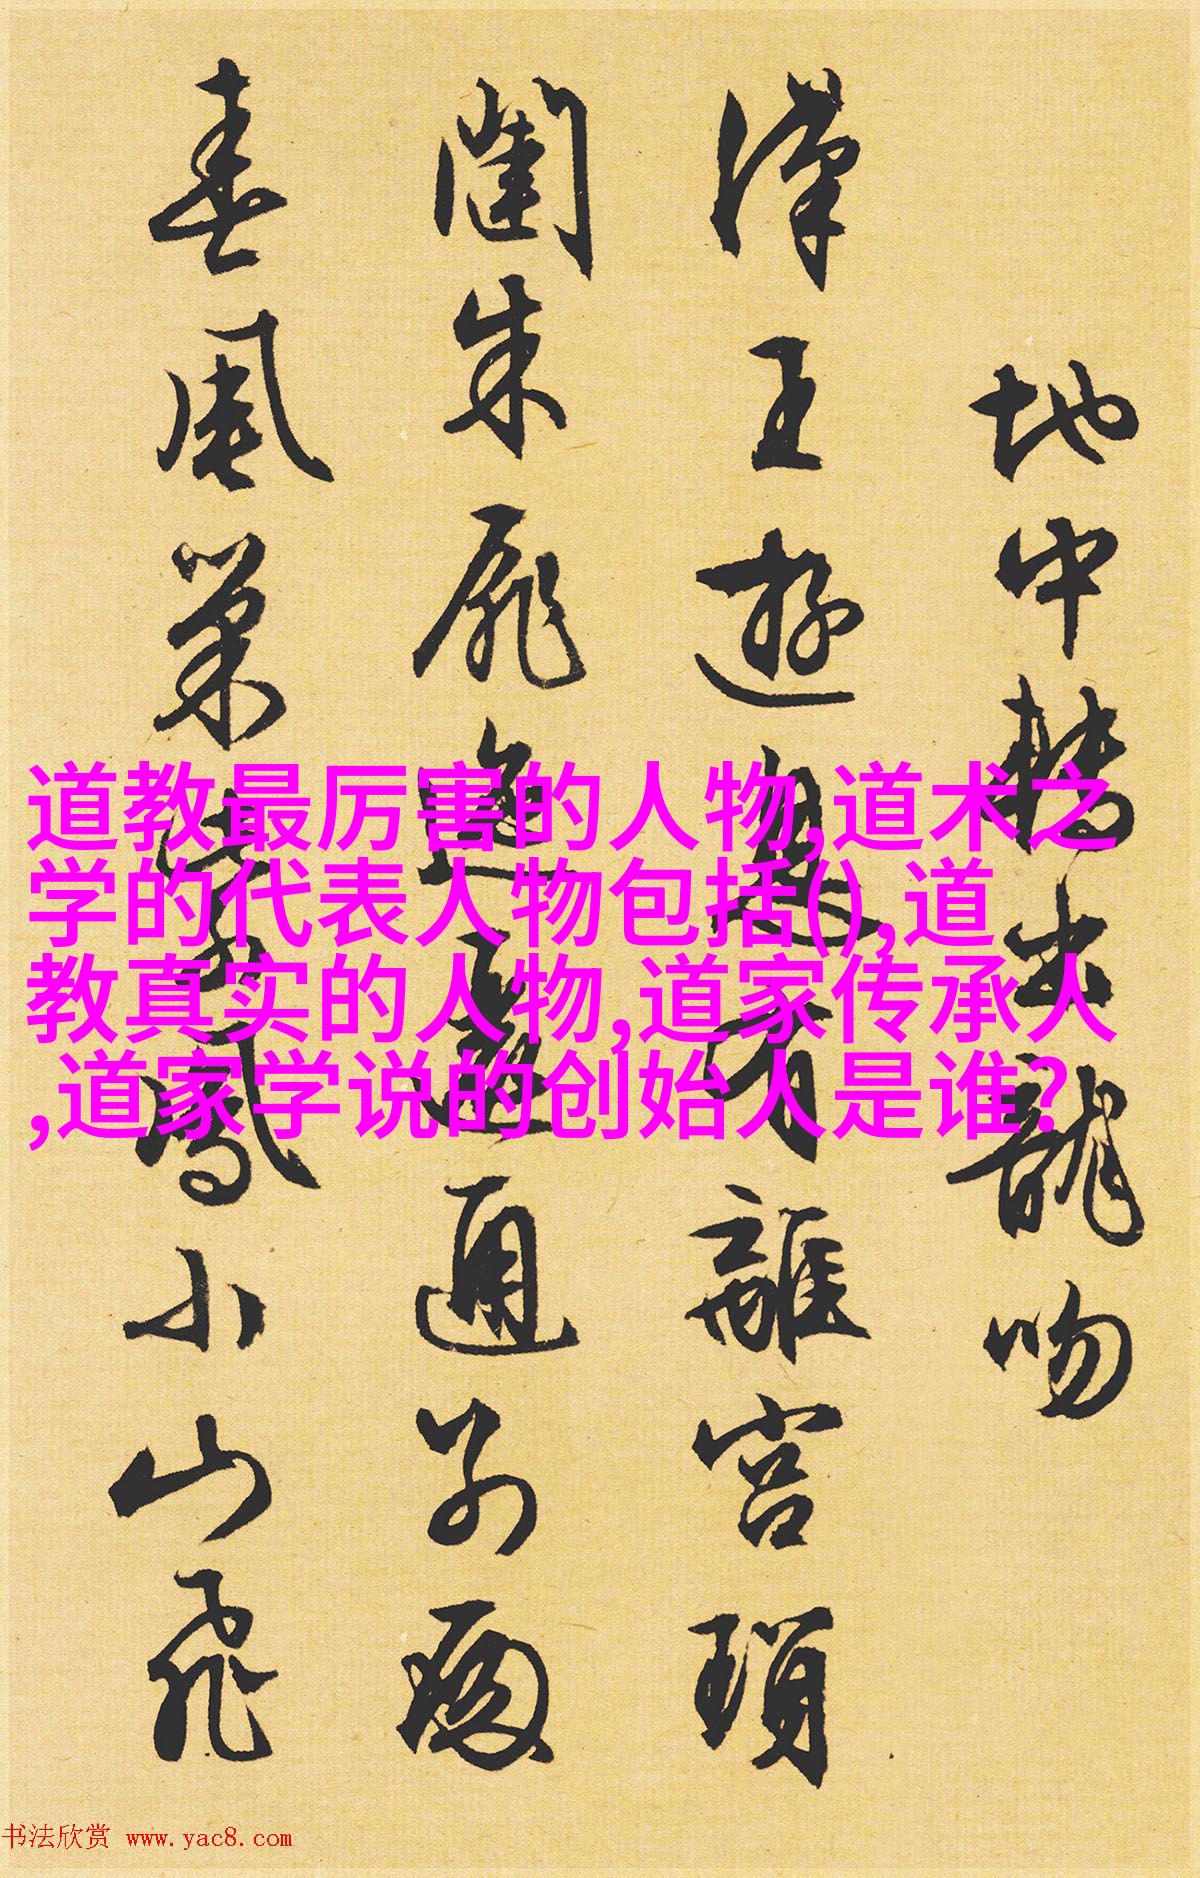 地中轉出龍吻
漢王遊息有離宮瑣
闥朱扉迤邐通別殿
春風巢紫鳳小山飛
道教最厉害的人物,道术之
学的代表人物包括(),道
教真实的人物,道家传承人
,道家学说的创始人是谁?
书法欣赏 www.yac8.com